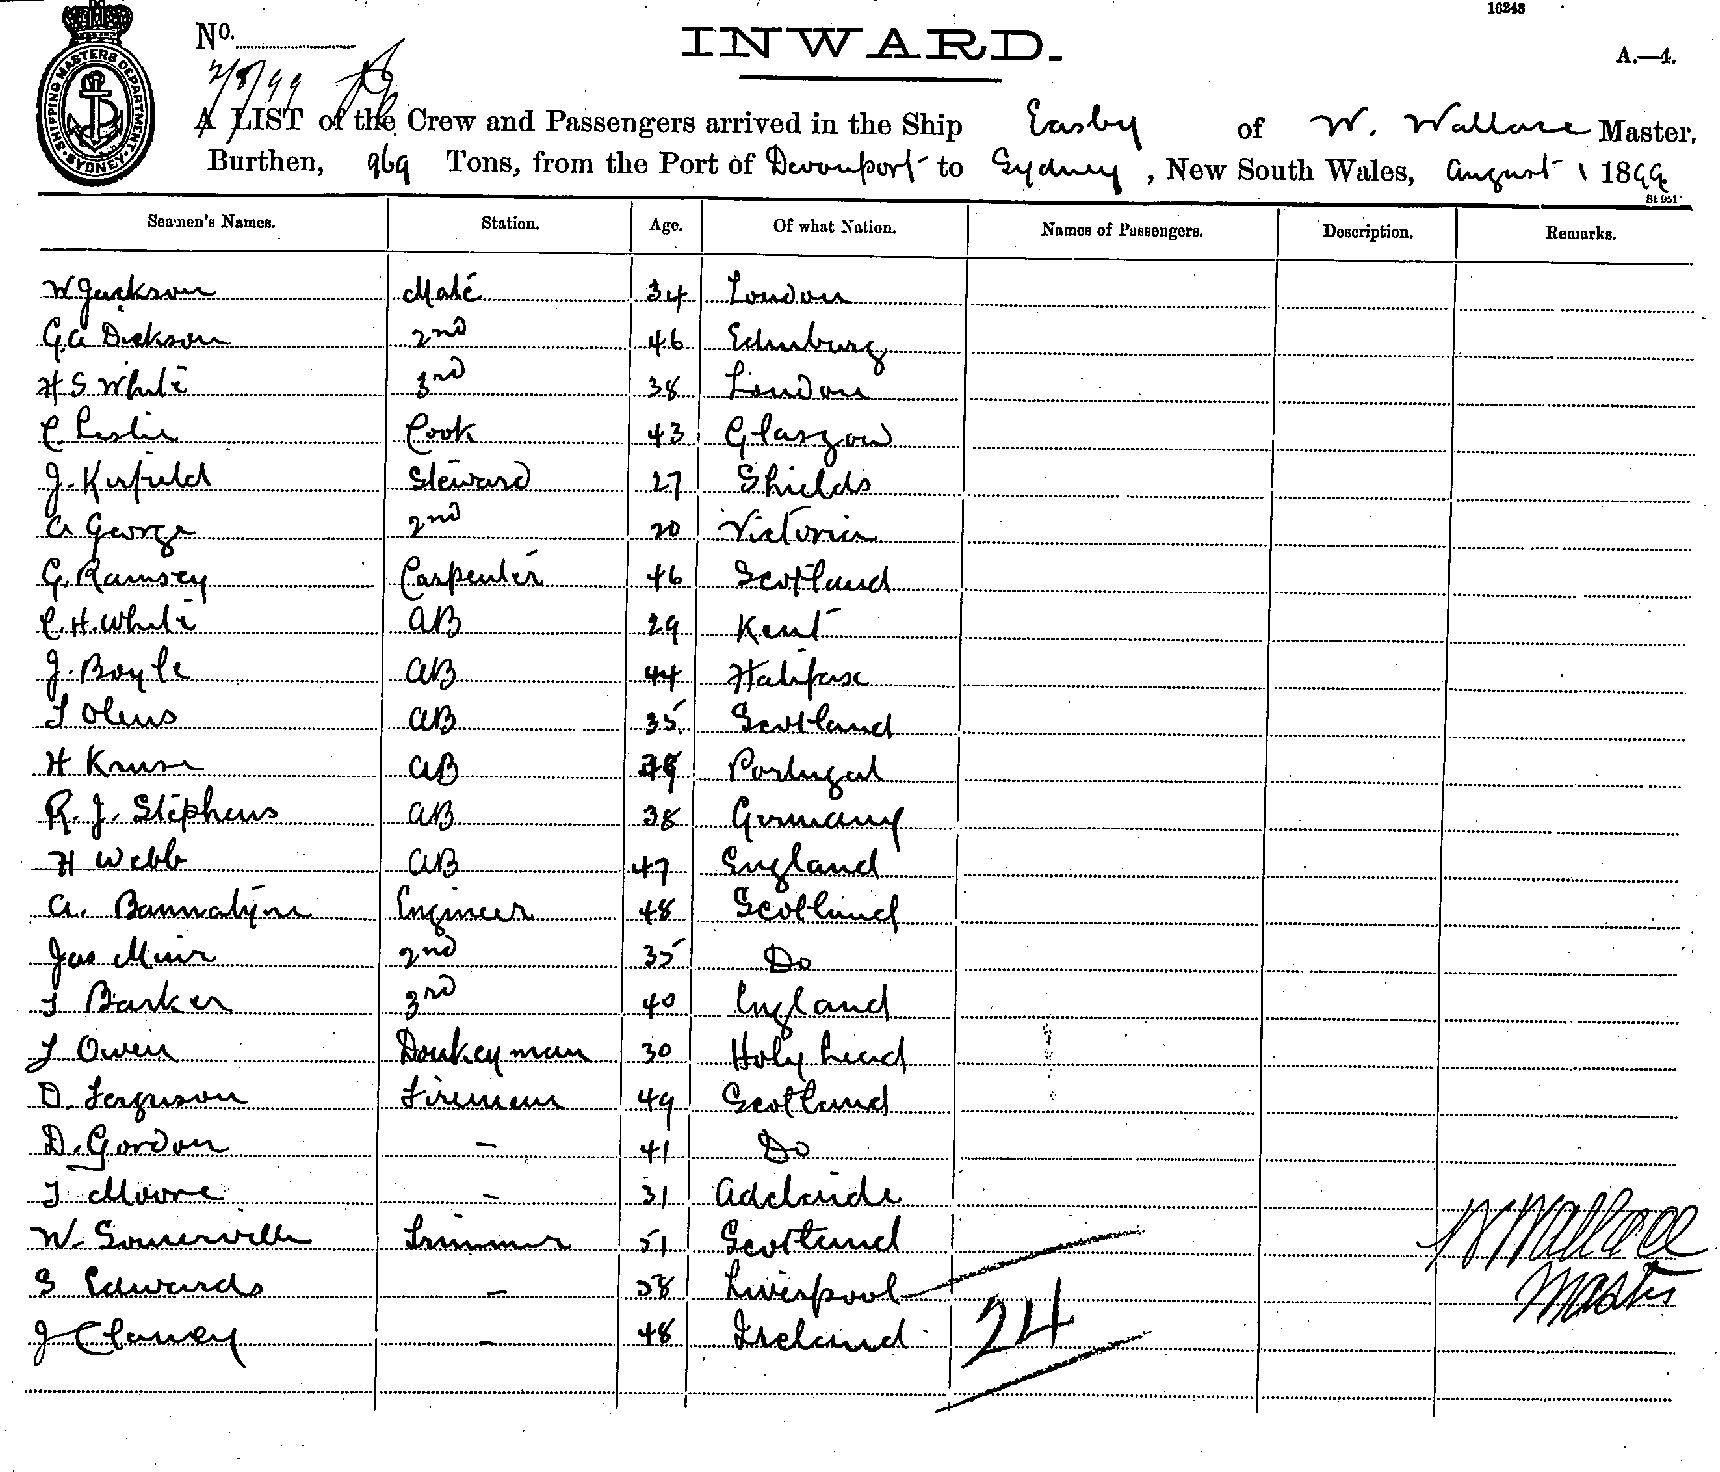 16243
No.
INWARD.
A.—4.
2/8/99
A LIST of the Crew and Passengers arrived in the Ship Easby of W. Wallace Master,
Burthen, 969 Tons, from the Port of Devonport to Sydney, New South Wales, August 1 1899
SHIPPING MASTERS DEPARTMENT. SYDNEY.
Seamen's Names. Station. Age. Of what Nation. Names of Passengers. Description. Remarks.
W Jackson Mate 34 London
G.A Dickson 2nd 46 Edinburg
H S White 3rd 38 London
C. Leslie Cook 43 Glasgow
J. Kirfield Steward 27 Shields
A George 2nd 20 Victoria
G. Ramsey Carpenter 46 Scotland
C.H. White AB 29 Kent
J. Boyle AB 44 Halifax
T Olens AB 35 Scotland
H Kruse AB Portugal
R. J. Stephens AB 38 Germany
H Webb AB 47 England
A. Bannatyne Engineer 48 Scotland
Jas Muir 2nd 35 Do
T Barker 3rd 40 England
T Owen Donkeyman 30 Holyhead
D. Ferguson Fireman 49 Scotland
D. Gordon - 41 Do
T Moore - 31 Adelaide
W. Somerville Trimmer 51 Scotland
S Edwards - 38 Liverpool
J Clancy - 48 Ireland
24
W Wallace
Master